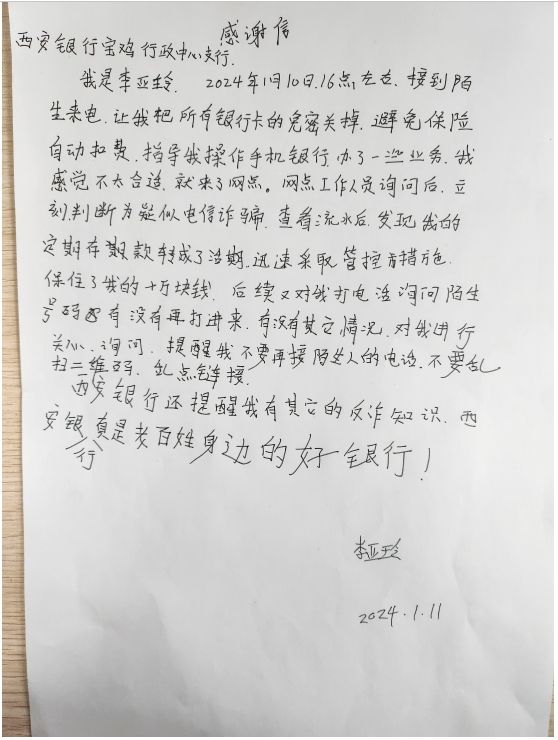 感谢信
西安银行宝鸡行政中心支行.
我是李亚玲. 2024年1月10日.16点左右. 接到陌
生来电. 让我把所有银行卡的免密关掉. 避免保险
自动扣费. 指导我操作手机银行办了一些业务. 我
感觉不太合适. 就来了网点。网点工作人员询问后. 立
刻判断为疑似电信诈骗. 查看流水后. 发现我的
定期存款转成了活期. 迅速采取管控措施.
保住了我的十万块钱. 后续又对我打电话询问陌生
号码有没有再打进来. 有没有其它情况. 对我进行
关心. 询问. 提醒我不要再接陌生人的电话. 不要乱
扫二维码. 乱点链接.
西安银行还提醒我有其它的反诈知识. 西
安银行真是老百姓身边的好银行!
李亚玲
2024.1.11